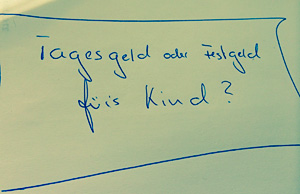 Tagesgeld oder Festgeld
für's Kind?